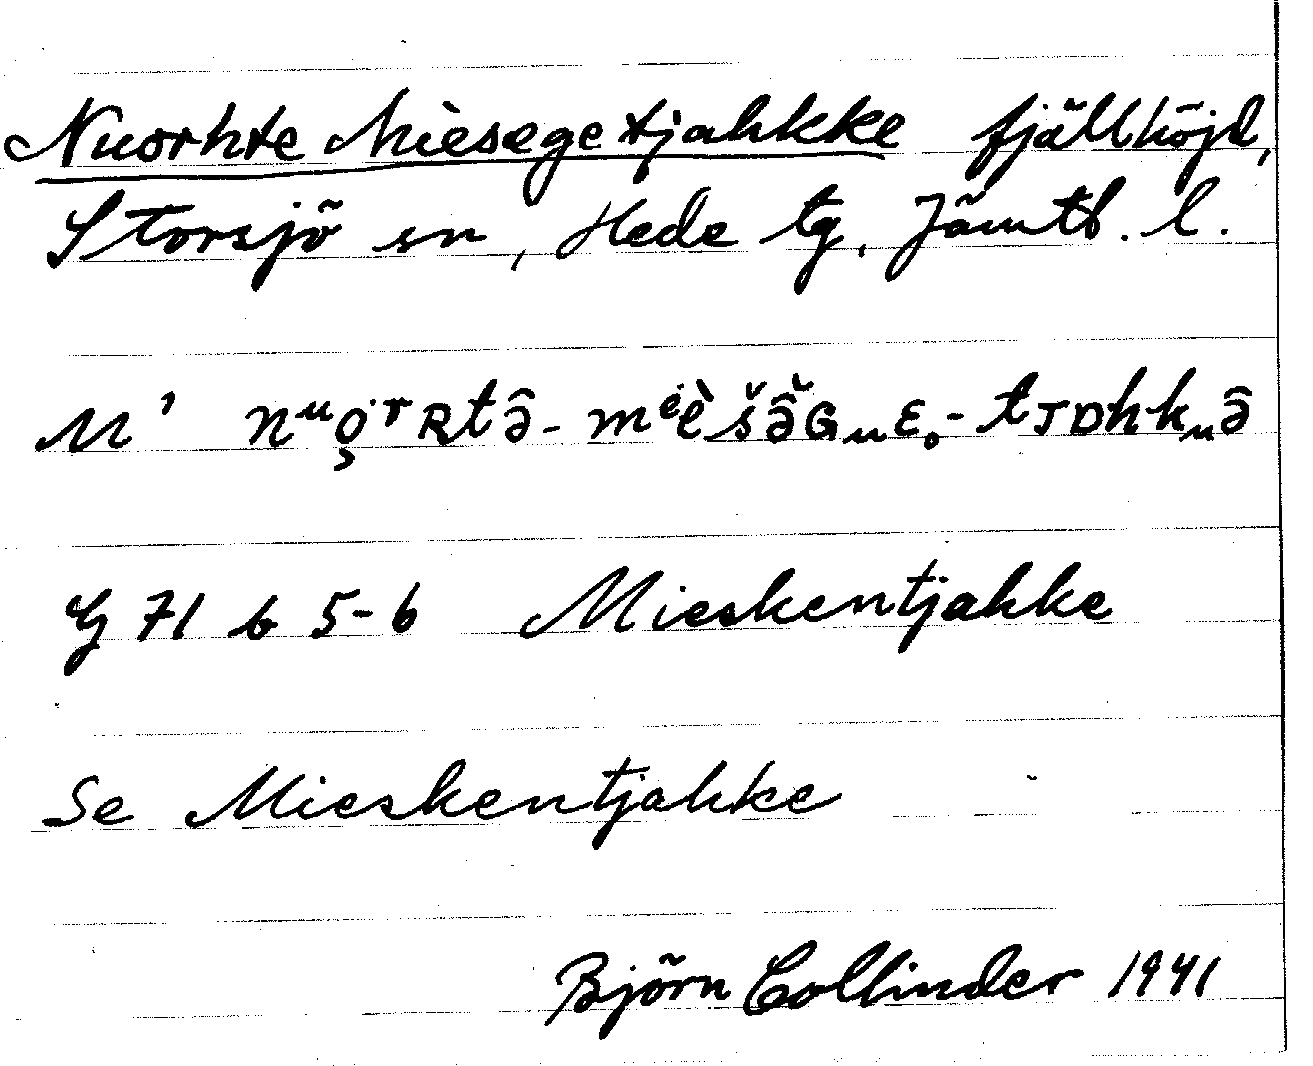 Nuorhte Mièsegetjahkke fjällhöjd,
Storsjö sn, Hede tg, Jämtl. l.
G 71 b 5-6 Mieskentjahke
Se Mieskentjahke
Björn Collinder 1941